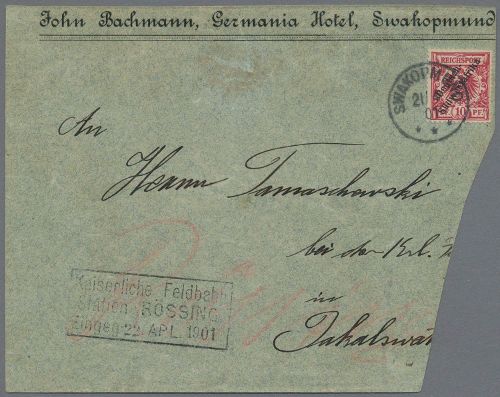 John Bachmann, Germania Hotel, Swakopmund
REICHSPOST
10 PF.
SWAKOPM
21
01
An
Herrn Tamaschowski
bei der Krl.
in
Jakalswa
Kaiserliche Feldbahn
Station RÖSSING
Eingeg 22. APL. 1901